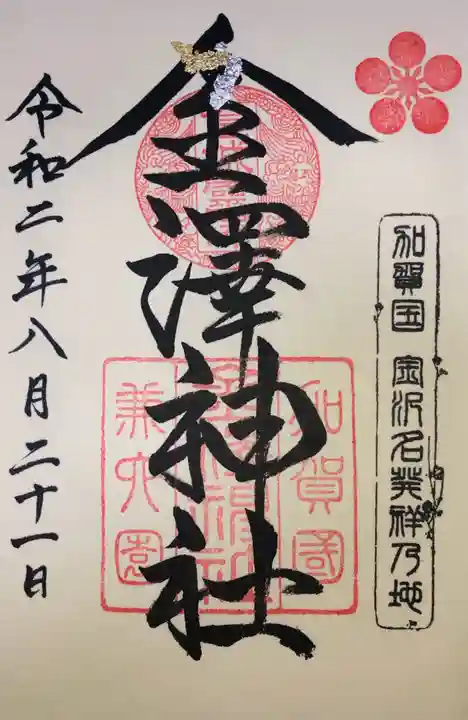 加賀国 金沢名発祥乃地
金澤神社
加賀國
金澤神社
兼六園
令和二年八月二十一日